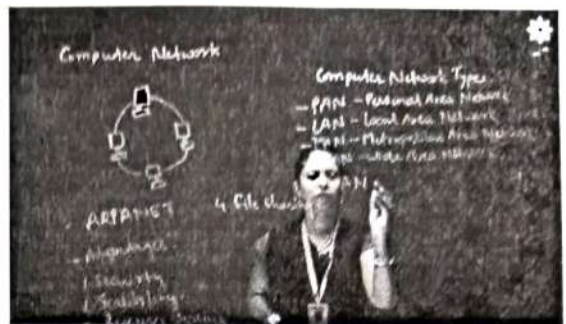 Computer Network
Computer Network Types
- PAN - Personal Area Network
- LAN - Local Area Network
- MAN - Metropolitan Area Network
Wide Area Network
AN
4. File Sharing
ARPANET
Security
Scalability
Resource